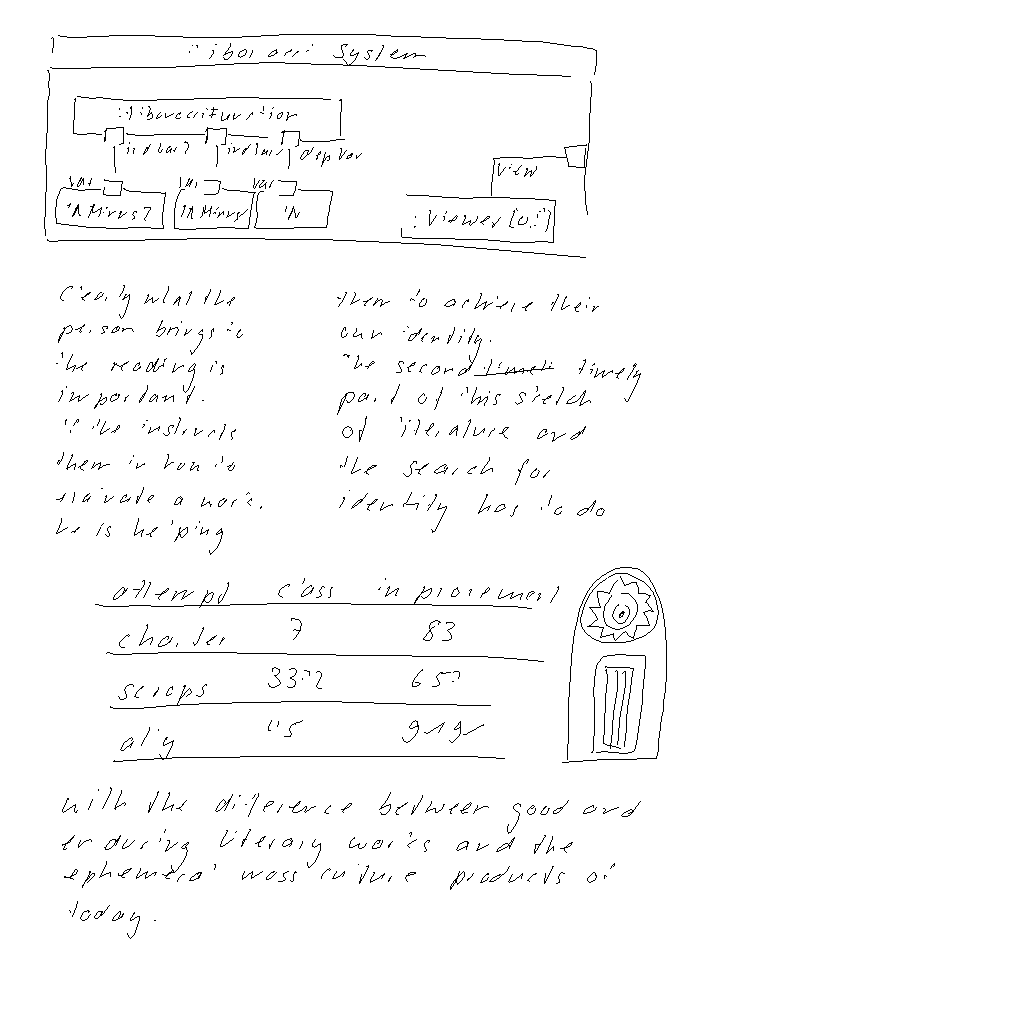 Fibonacci System
:FibonacciFunction
indVar2 indVar1 depVar
var var var
:NMinus2 :NMinus1 :N
view
:Viewer[0..*]
Clearly what the
person brings to
the reading is
important.
If the instructs
them in how to
evaluate a work,
he is helping
them to achieve their
own identity.
The second timely
part of this sketch
of literature and
the search for
identity has to do
attempt class improvement
charter 7 83
scraps
ally
with the difference between good and
enduring literary works and the
ephemeral mass culture products of
today.